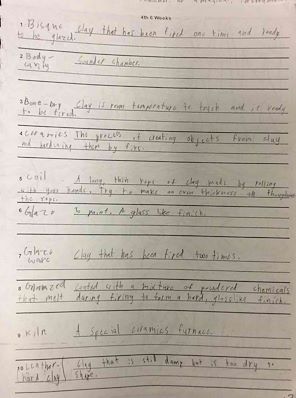 4th 6 Weeks
1. Bisque Clay that has been fired one time and ready
to be glazed.
2 Body-
cavity Sounder chamber.
3 Bone-Dry Clay is room temperature to touch and is ready
to be fired.
4 Ceramics The process of creating objects from clay
and hardening them by fire.
5 Coil A long, thin rope of clay made by rolling
with your hands. Try to make an even thickness all throughout
the rope.
6 Glaze paint. A glass like finish.
7 Glaze
ware Clay that has been fired two times.
8 Glazed Coated with a mixture of powdered chemicals
that melt during firing to form a hard, glasslike finish.
9 Kiln A special ceramics furnace.
10 Leather-
hard clay Clay that is still damp but is too dry to
shape.